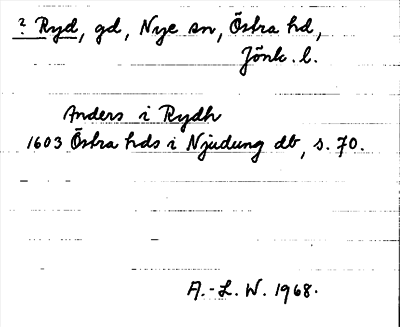 ? Ryd, gd, Nye sn, Östra hd,
Jönk. l.
Anders i Rydh
1603 Östra hds i Njudung db, s. 70.
A.-L. W. 1968.